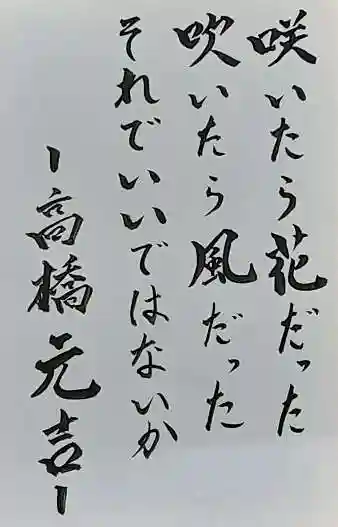 咲いたら花だった
吹いたら風だった
それでいいではないか
ー高橋元吉ー